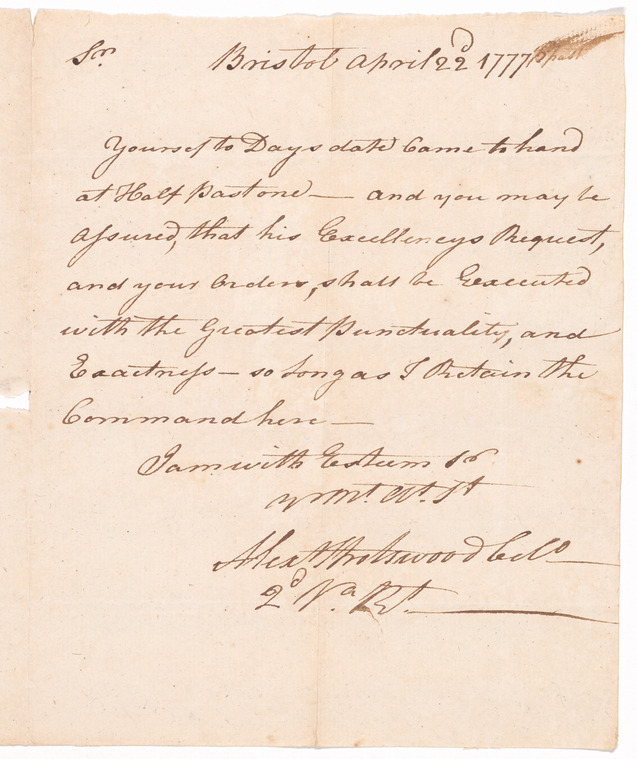 Sr. Bristol April 22d 1777
Yours of to Days date Came to hand
at Half Past one — and you may be
assured, that his Excellencys Request,
and your Orders, shall be Executed
with the Greatest Punctuality, and
Exactness — so Long as I Retain the
Command here —
I am with Esteem Sr
yr Mt. Ob. St
Alexr Spotswood Colo
2d Va. Rt.